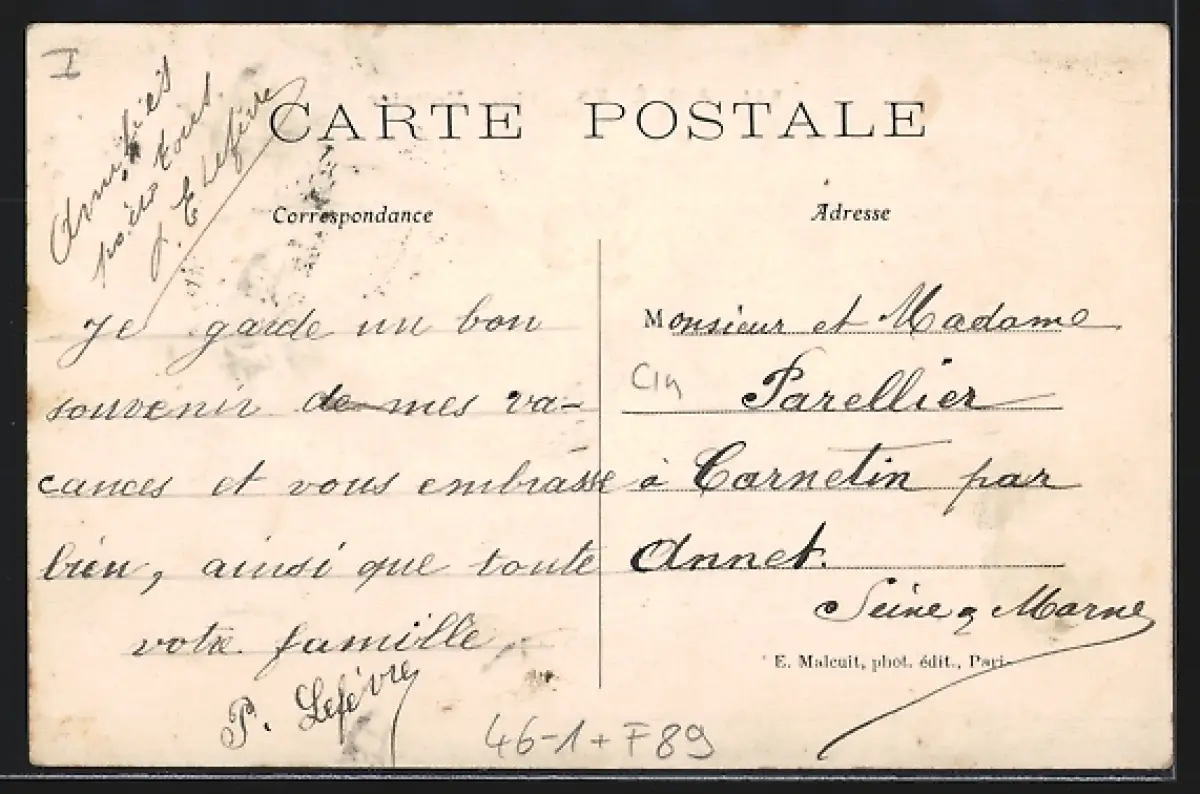 I
Amitiés
pour tous.
J. E Lefèvre
CARTE POSTALE
Correspondance
Adresse
Je garde un bon
souvenir de mes va-
cances et vous embrasse
bien, ainsi que toute
votre famille
P. Lefèvre
Monsieur et Madame
Parellier
à Carnetin par
Annet.
Seine & Marne
E. Malcuit, phot. édit., Paris
46-1+F89